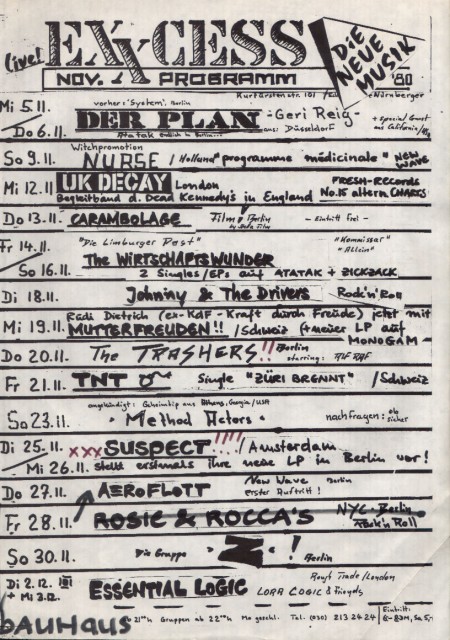 live! EXXCESS
DIE NEUE MUSIK '80
NOV. PROGRAMM
Kurfürstenstr. 101
Mi 5.11. vorher: 'System', Berlin
DER PLAN -Geri Reig-
+ Special Guest
Do 6.11. Atatak endlich in Berlin... aus: Düsseldorf
So 9.11. Witchpromotion
NURSE / Holland "programme médicinale" NEW WAVE
Mi 12.11 UK DECAY London FRESH-RECORDS
Begleitband d. Dead Kennedy's in England No.15 altern. CHARTS
Do 13.11. CARAMBOLAGE Film: Berlin - Eintritt frei -
Fr 14.11. "Die Limburger Post" "Kommissar"
The WIRTSCHAFTSWUNDER "Allein"
So 16.11. 2 Singles/EPs auf ATATAK + ZICKZACK
Di 18.11. Johnny & The Drivers Rock'n'Roll
Rudi Dietrich (ex-KdF-Kraft durch Freude) jetzt mit
Mi 19.11. MUTTERFREUDEN!! /Schweiz (+neuer LP auf MONOGAM
Do 20.11. The TRASHERS!! Berlin
starring: RIF RAF
Fr 21.11. TNT Single "ZÜRI BRENNT" /Schweiz
angekündigt: Geheimtip aus Athens, Georgia/USA
So 23.11. · Method Actors · nachfragen: ob sicher
Di 25.11. xxx SUSPECT!!!! / Amsterdam
Mi 26.11. stellt erstmals ihre neue LP in Berlin vor!
Do 27.11. AEROFLOTT New Wave Berlin
erster Auftritt!
Fr 28.11. ROSIE & ROCCA'S NYC-Berlin
Rock'n Roll
So 30.11. Die Gruppe · Z · ! Berlin
Di 2.12. !!! Rough Trade/London
+ Mi 3.12. ESSENTIAL LOGIC LORA LOGIC & friends
BAUHAUS 21ºº h Gruppen ab 22ºº h Mo geschl. Tel. (030) 213 24 24 Eintritt:
6-8DM, Sa 5,-